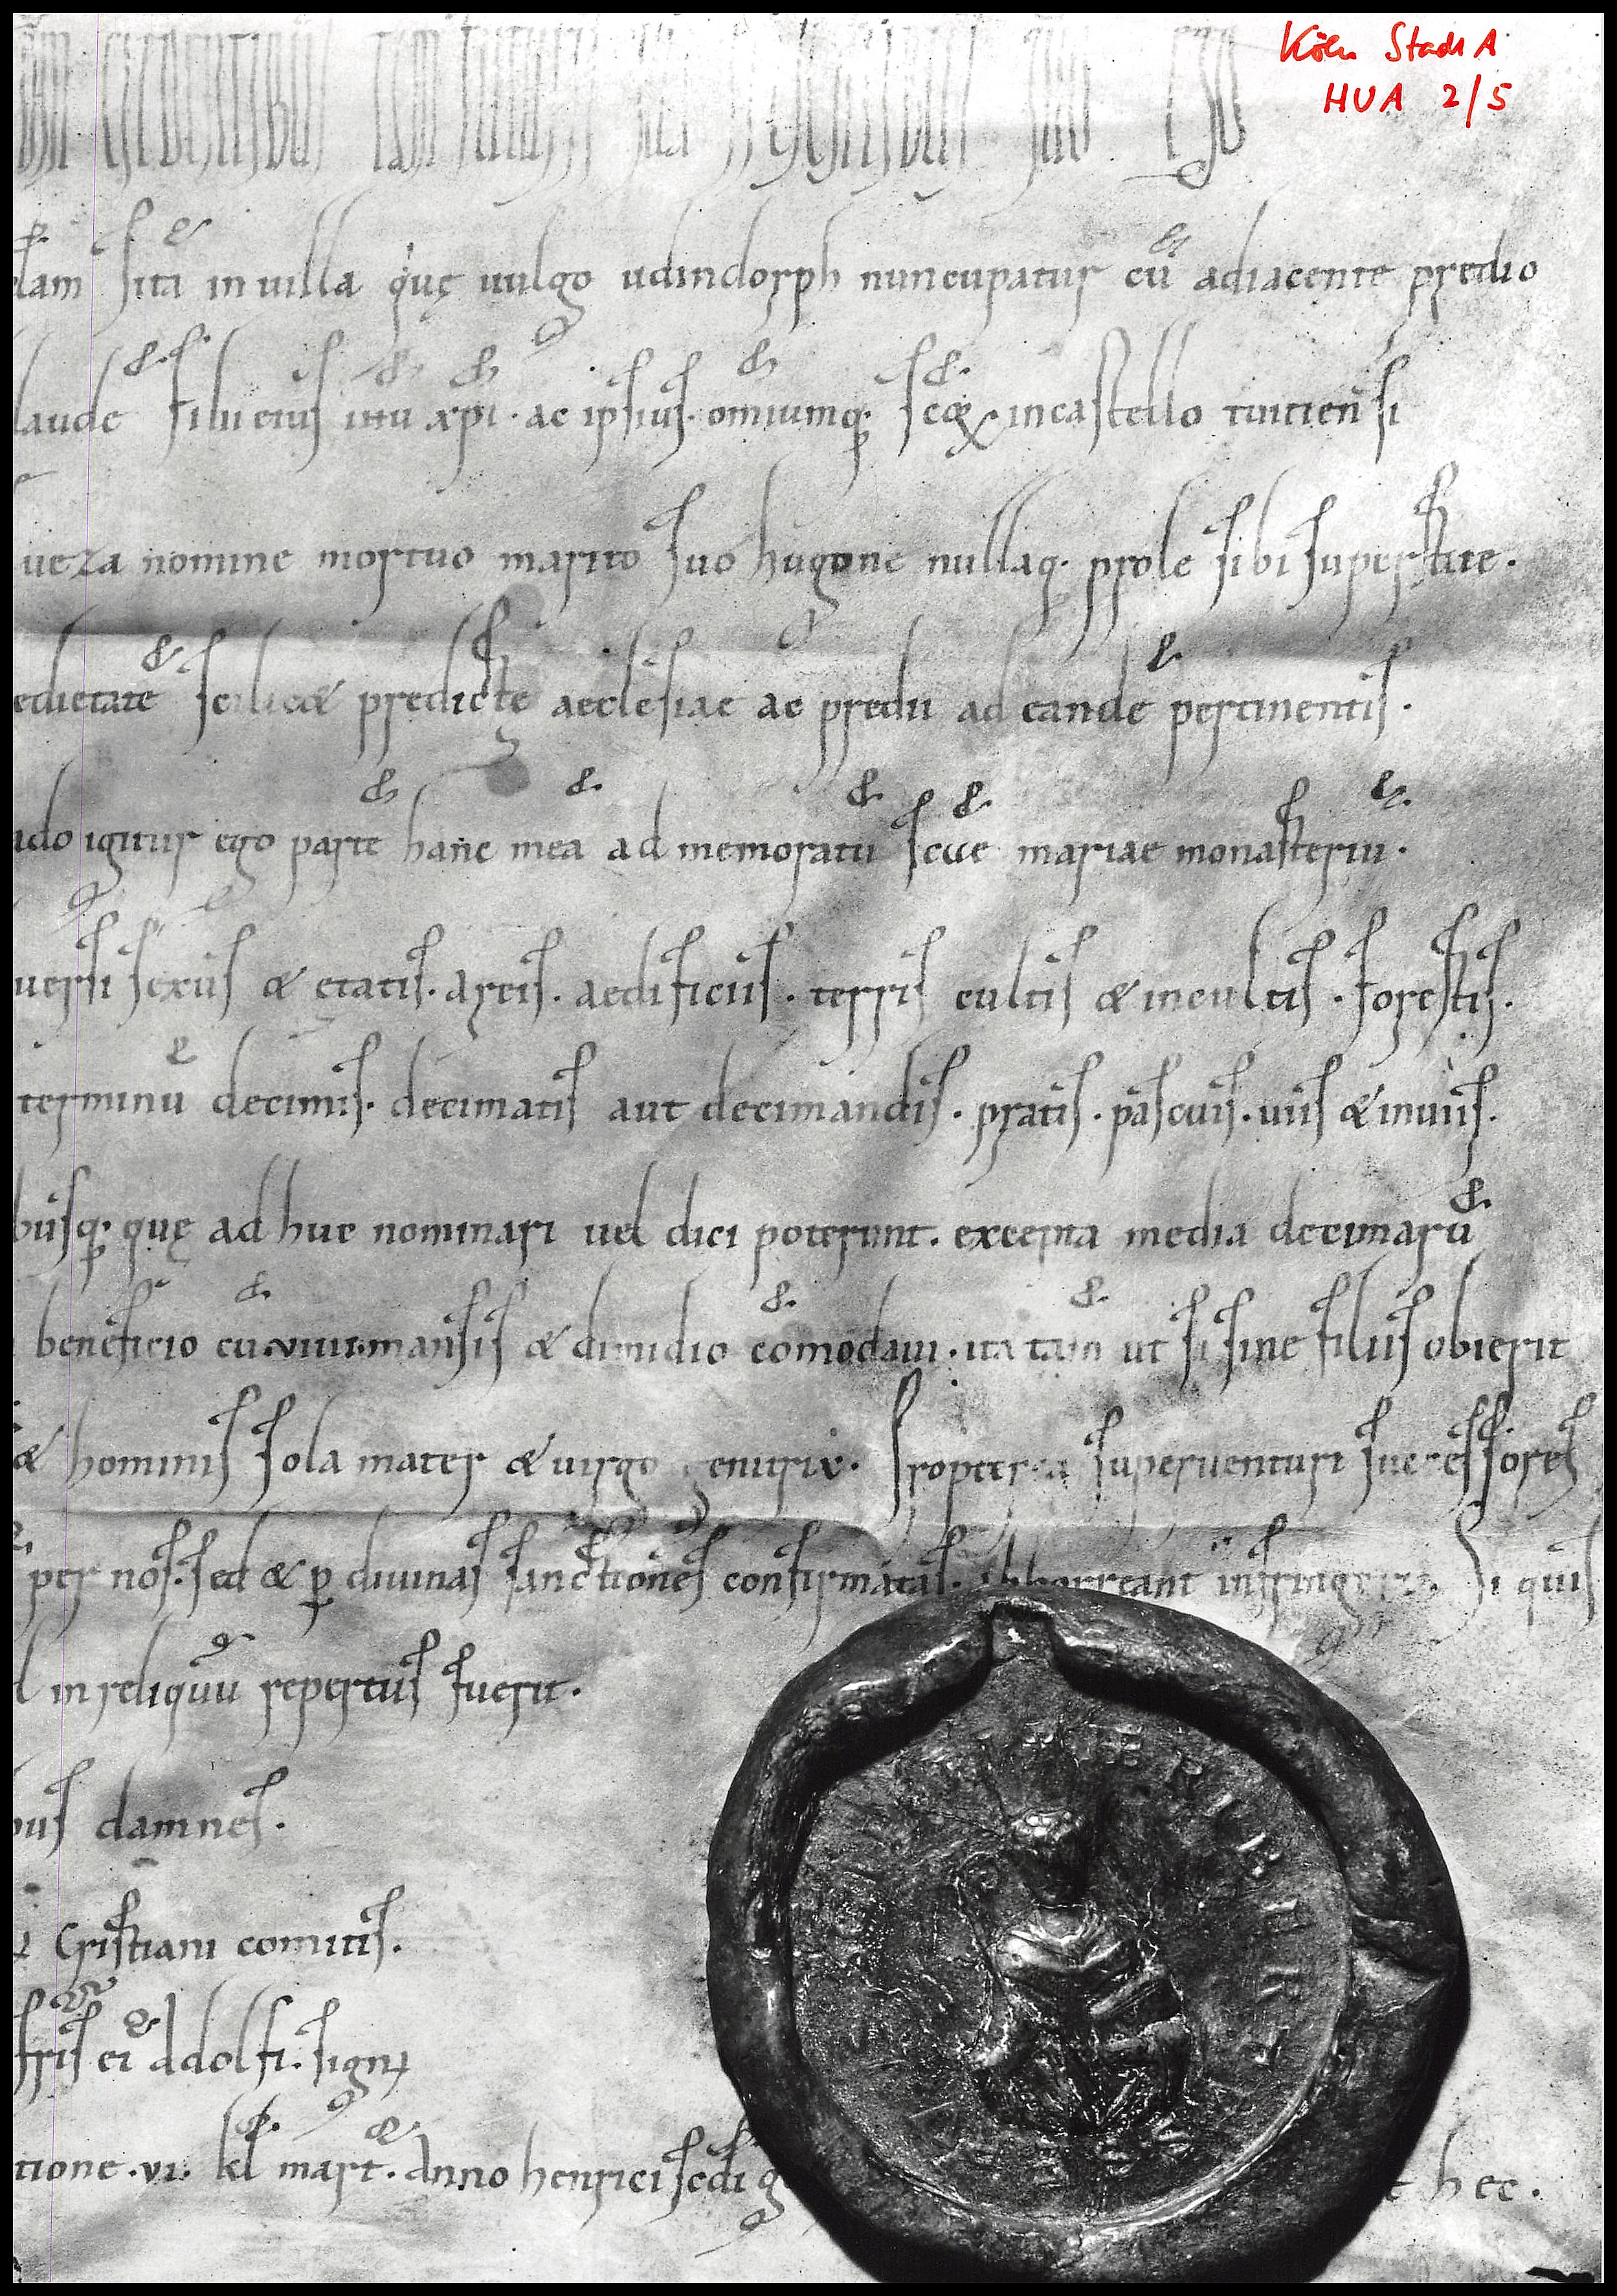 Köln StadtA
HUA 2/5
credentibus quod ego
sita in villa quę vulgo udindorph nuncupatur cū adiacente predio
laude filii eius ihu xpi · ac ipsius · omniumq; scōꝝ in castello tuitiensi
ueza nomine mortuo marito suo hugone nullaq; prole sibi superstite ·
edietatē scilicet predictę aecclesiae ac predii ad eandē pertinentis ·
igitur ego partē hanc meā ad memoratū scae mariae monasteriū ·
uersi sexus & ętatis · areis · aedificiis · terris cultis & incultis · forestis ·
terminū decimis · decimatis aut decimandis · pratis · pascuis · uiis & inuiis ·
busq; quę ad huc nominari uel dici poterunt · excepta media decimarū
beneficio cū viiii · mansis & dimidio cōmodaui · ita tam̄ ut si sine filiis obierit
& hominis sola mater & uirgo genitrix · Propterea superuenturi successores
per nos · sed & ꝑ diuinas sanctiones confirmatas · abhorreant infringere · Si quis
in reliquū repertus fuerit ·
damnes ·
Cristiani comitis ·
fr̄is ei Adolfi · signū
tione · vi · kl mart · Anno heinrici sc̄di
hec ·